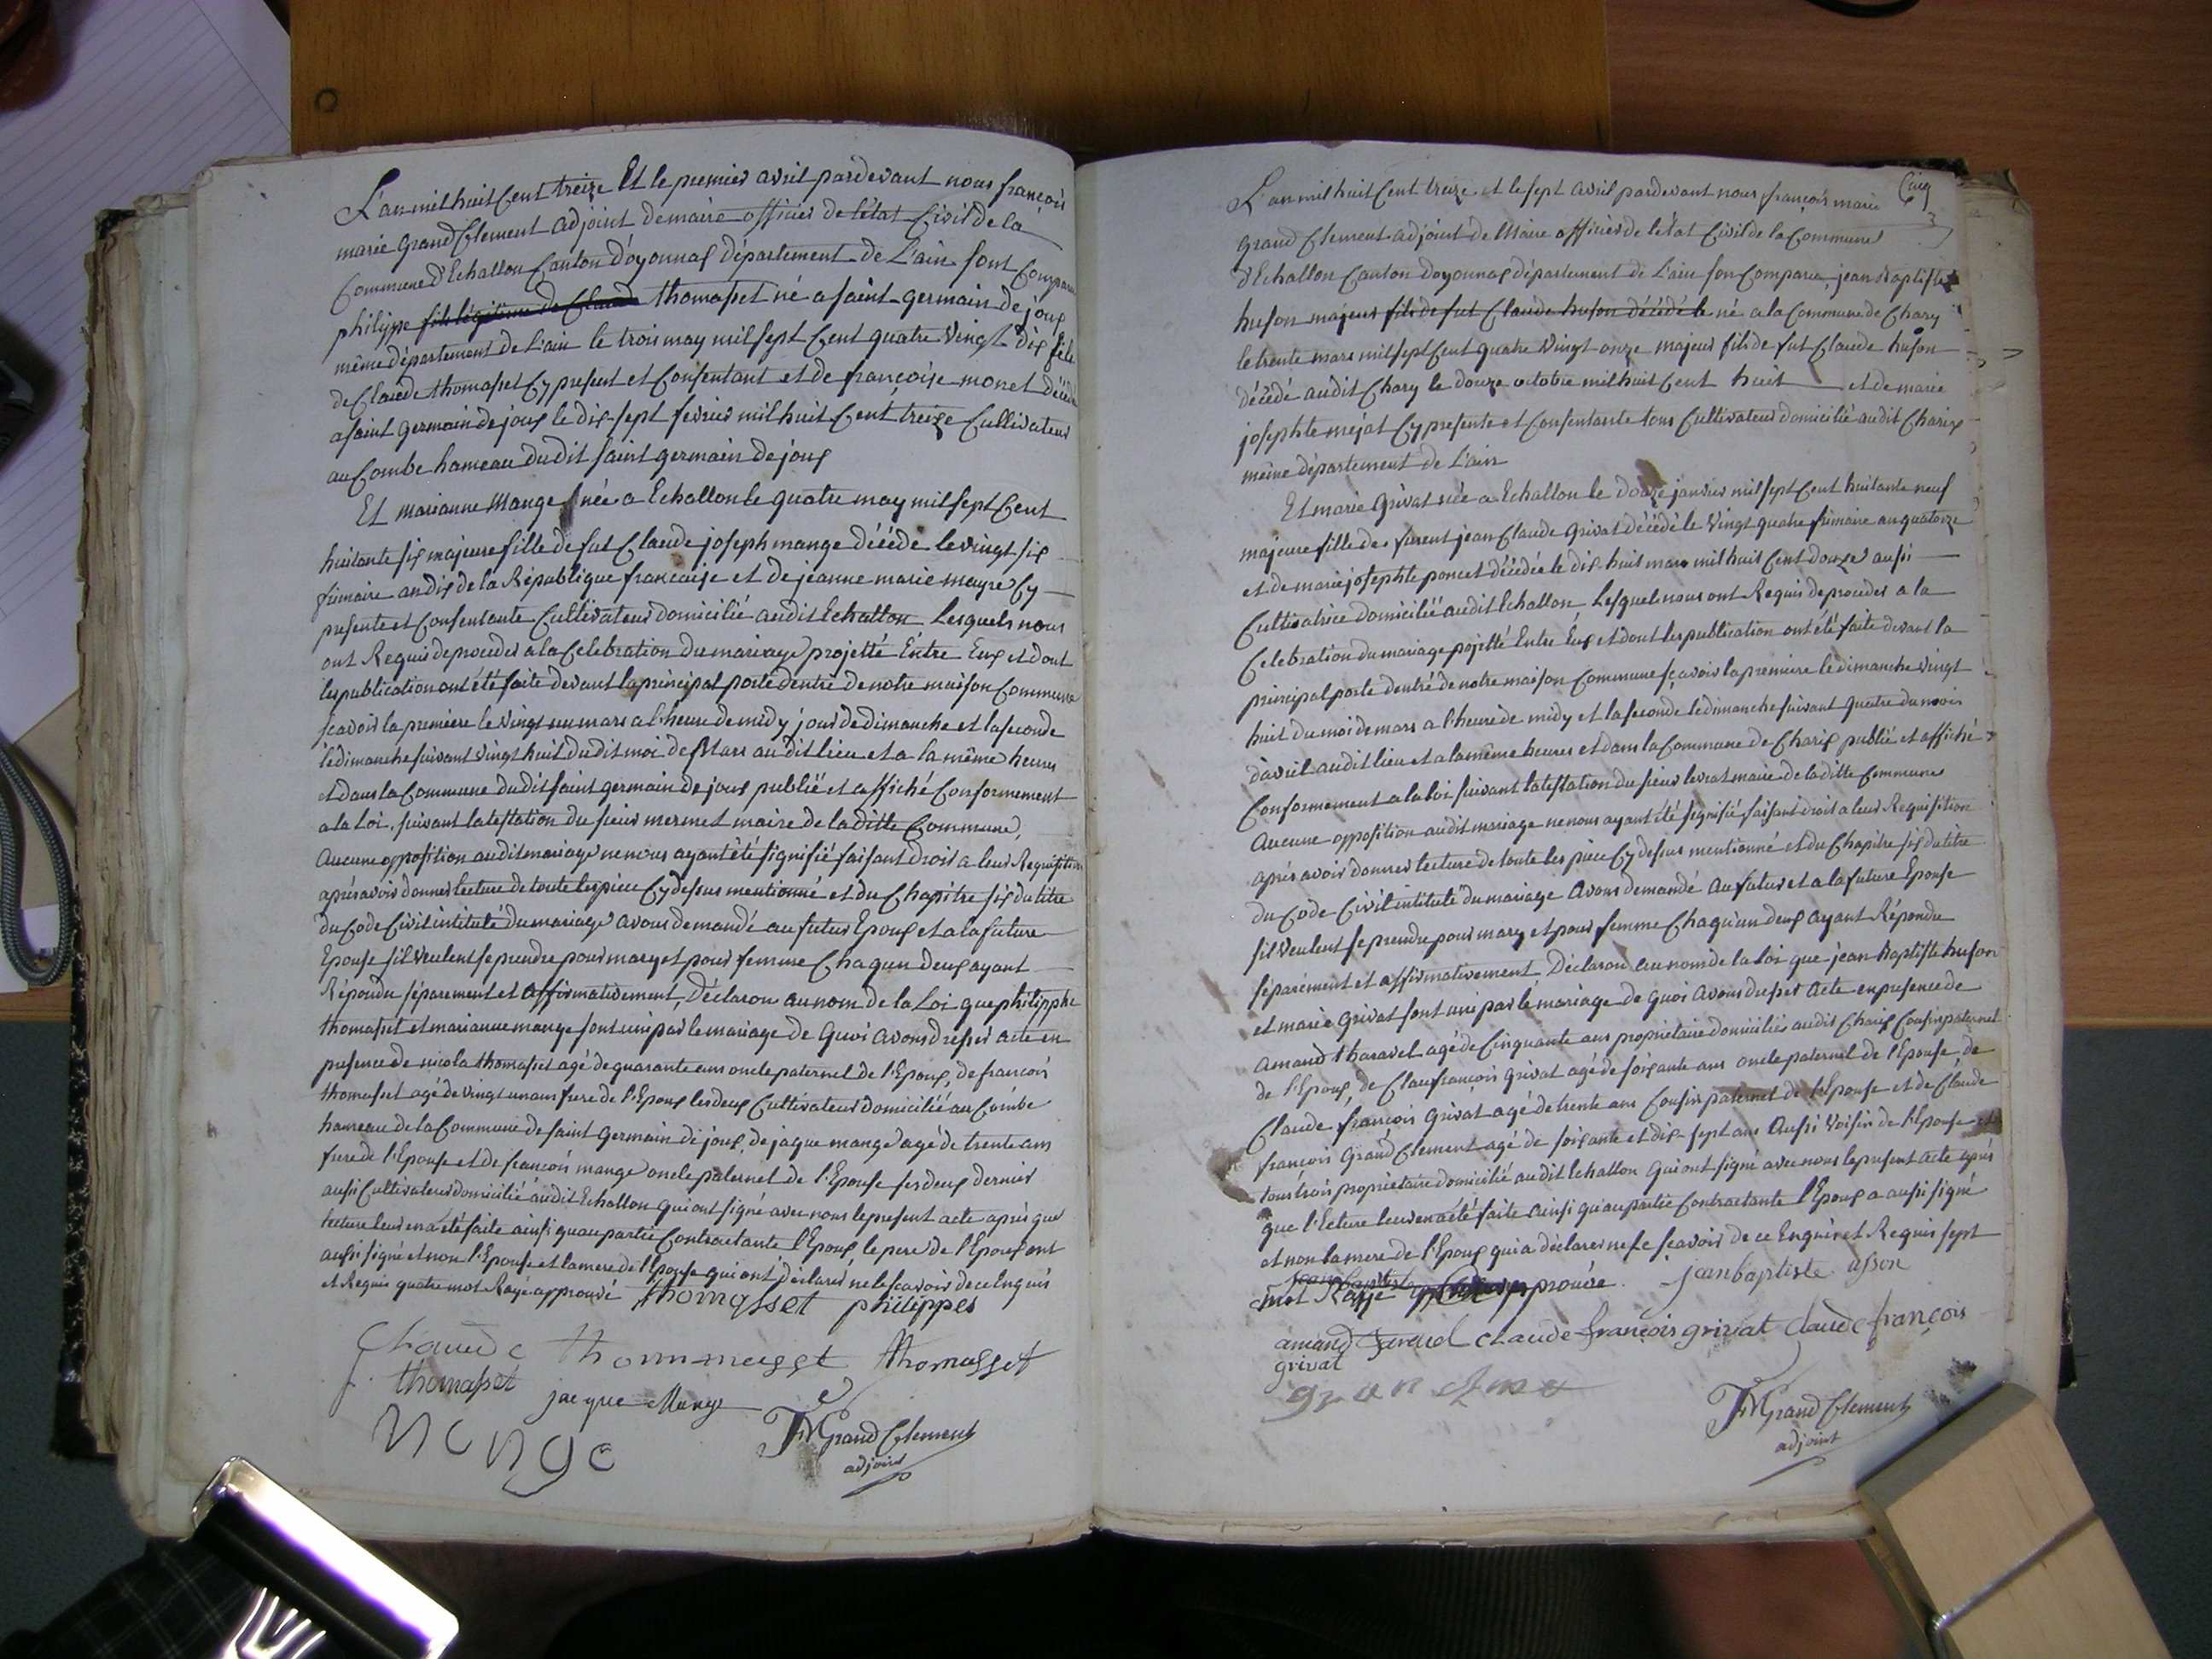 L'an mil huit Cent treize Et le premier avril pardevant nous françois
marie Grand Clement adjoint de maire officier de l'état Civil de la
Commune d'Echallon Canton d'oyonnax département de L'ain sont Comparu
philippe fils légitime de Claude thomasset né a saint-germain de joux
même département de L'ain le trois may mil sept Cent quatre vingt dix fils
de Claude thomasset Cy present et Consentant et de françoise monet décédée
a saint germain de joux le dix-sept fevrier mil huit Cent treize Cultivateur
au Combe hameau dudit saint germain de joux
Et marianne Mange née a Echallon le quatre may mil sept Cent
huitante six majeure fille de fut Claude joseph mange décédé le vingt six
frimaire an dix de la République francaise et de jeanne marie mayre Cy
presente et Consentante Cultivateur domicilié audit Echallon Lesquels nous
ont Requis de proceder a la Celebration du mariage projetté Entre Eux et dont
les publication ont été faite devant la principal porte dentré de notre maison Commune
scavoir la premiere le vingt un mars a l'heure de midy jour de dimanche et la seconde
le dimanche suivant vingt huit dudit moi de Mars audit lieu et a la même heure
et dans la Commune dudit saint germain de joux publié et affiché Conformement
a la Loi, suivant latestation du sieur mermet maire de laditte Commune,
Aucune opposition audit mariage ne nous ayant été signifié faisant droit a leur Requisition
après avoir donner lecture de toute les piece Cy dessus mentionné et du Chapitre six du titre
du Code Civil intitulé du mariage avons demandé au futur Epoux et a la future
Epouse sil veulent se prendre pour mary et pour femme Chaqun deux ayant
Répondu séparement et affirmativement, Déclaron au nom de la Loi que philipphe
thomasset et marianne mange sont uni par le mariage de Quoi avons dresser acte en
presence de nicola thomasset agé de quarante ans oncle paternel de l'Epoux, de francois
thomasset agé de vingt un ans frere de l'Epoux les deux Cultivateur domicilié au Combe
hameau de la Commune de saint Germain de joux, de jaque mange agé de trente ans
frere de l'Epouse et de francois mange oncle paternel de l'Epouse ses deux dernier
aussi Cultivateur domicilié audit Echallon qui ont signé avec nous le present acte après que
lecture leur en a été faite ainsi quau partie Contractante l'Epoux le pere de l'Epoux ont
aussi signé et non l'Epouse et la mere de l'Epouse qui ont déclarer ne le scavoir de ce Enquis
et Requis quatre mot Rayé approuvé thomasset philippes
Claude thommasset thomasset
f. thomasset jacque Mange
Mange
FM Grand Clement
adjoint
Cinq
3
L'an mil huit Cent treize et le sept avril pardevant nous françois marie
Grand Clement adjoint de Maire officier de l'état Civil de la Commune
d'Echallon Canton doyonnax département de L'ain son Comparu, jean Baptiste
huson majeur fils de fut Claude huson décédé le né a la Commune de Chary
le trente mars mil sept Cent quatre vingt onze majeur fils de fut Claude huson
décédé audit Chary le douze octobre mil huit Cent huit et de marie
josephte méjat Cy presente et Consentante tous Cultivateur domicilié audit Charix
même département de L'ain
Et marie Grivat née a Echallon le douze janvier mil sept Cent huitante neuf
majeure fille des furent jean Claude Grivat décédé le Vingt quatre frimaire an quatorze
et de marie josephte poncet décédée le dix huit mars mil huit Cent douze aussi
Cultivatrice domiciliée audit Echallon, Lesquel nous ont Requis de proceder a la
Celebration du mariage pojetté Entre Eux et dont les publication ont été faite devant la
principal porte dentré de notre maison Commune sçavoir la premiere le dimanche vingt
huit du moi de mars a l'heure de midy et la seconde le dimanche suivant quatre du mois
d'avril audit lieu et a la même heures et dans la Commune de Charix publié et affiché
Conformement a la loi suivant latestation du sieur levrat maire de laditte Commune
Aucune opposition audit mariage ne nous ayant été signifié, faisant droit a leur Requisition
après avoir donner lecture de toute les piece Cy dessus mentionné et du Chapitre six du titre
du Code Civil intitulé du mariage Avons demandé au futur et a la future Epouse
sil veulent se prendre pour mary et pour femme Chaqu'un deux ayant Répondu
séparément et affirmativement Déclaron au nom de la loi que jean Baptiste huson
et marie Grivat sont uni par le mariage de Quoi avons dresser acte en presence de
amand tharavel agé de Cinquante ans propriétaire domicilié audit Charix Cousin paternel
de l'Epoux, de Clau françois Grivat agé de soixante ans oncle paternel de l'Epouse, de
Claude françois Grivat agé de trente ans Cousin paternel de l'Epouse et de Claude
françois Grand Clement agé de soixante et dix sept ans Aussi Voisin de l'Epouse
tous trois propriétaire domicilié audit Echallon Qui ont signé avec nous le present acte après
que l'Ecture leur en a été faite ainsi qu'au partie Contractante l'Epoux a aussi signé
et non la mere de l'Epoux qui a déclarer ne le sçavoir de ce Enquis et Requis sept
jean baptiste
mot Rayé approuée. jean baptiste asson
amand claude françois grivat claude françois
grivat
FM Grand Clement
adjoint